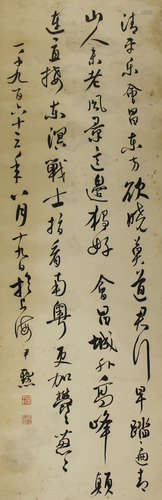 清平乐会昌东方欲晓莫道君行早踏遍青
山人未老风景这边独好会昌城外高峰颠
连直接东溟战士指看南粤更加郁郁葱葱
一千九百六十三年八月十九日于上海尹默